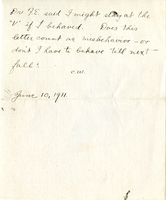 Dr. F.E. said I might stay at the
"U" if I behaved. Does this
letter count as misbehavior - or
don't I have to behave 'till next
fall?
C.W.
June 10, 1911.